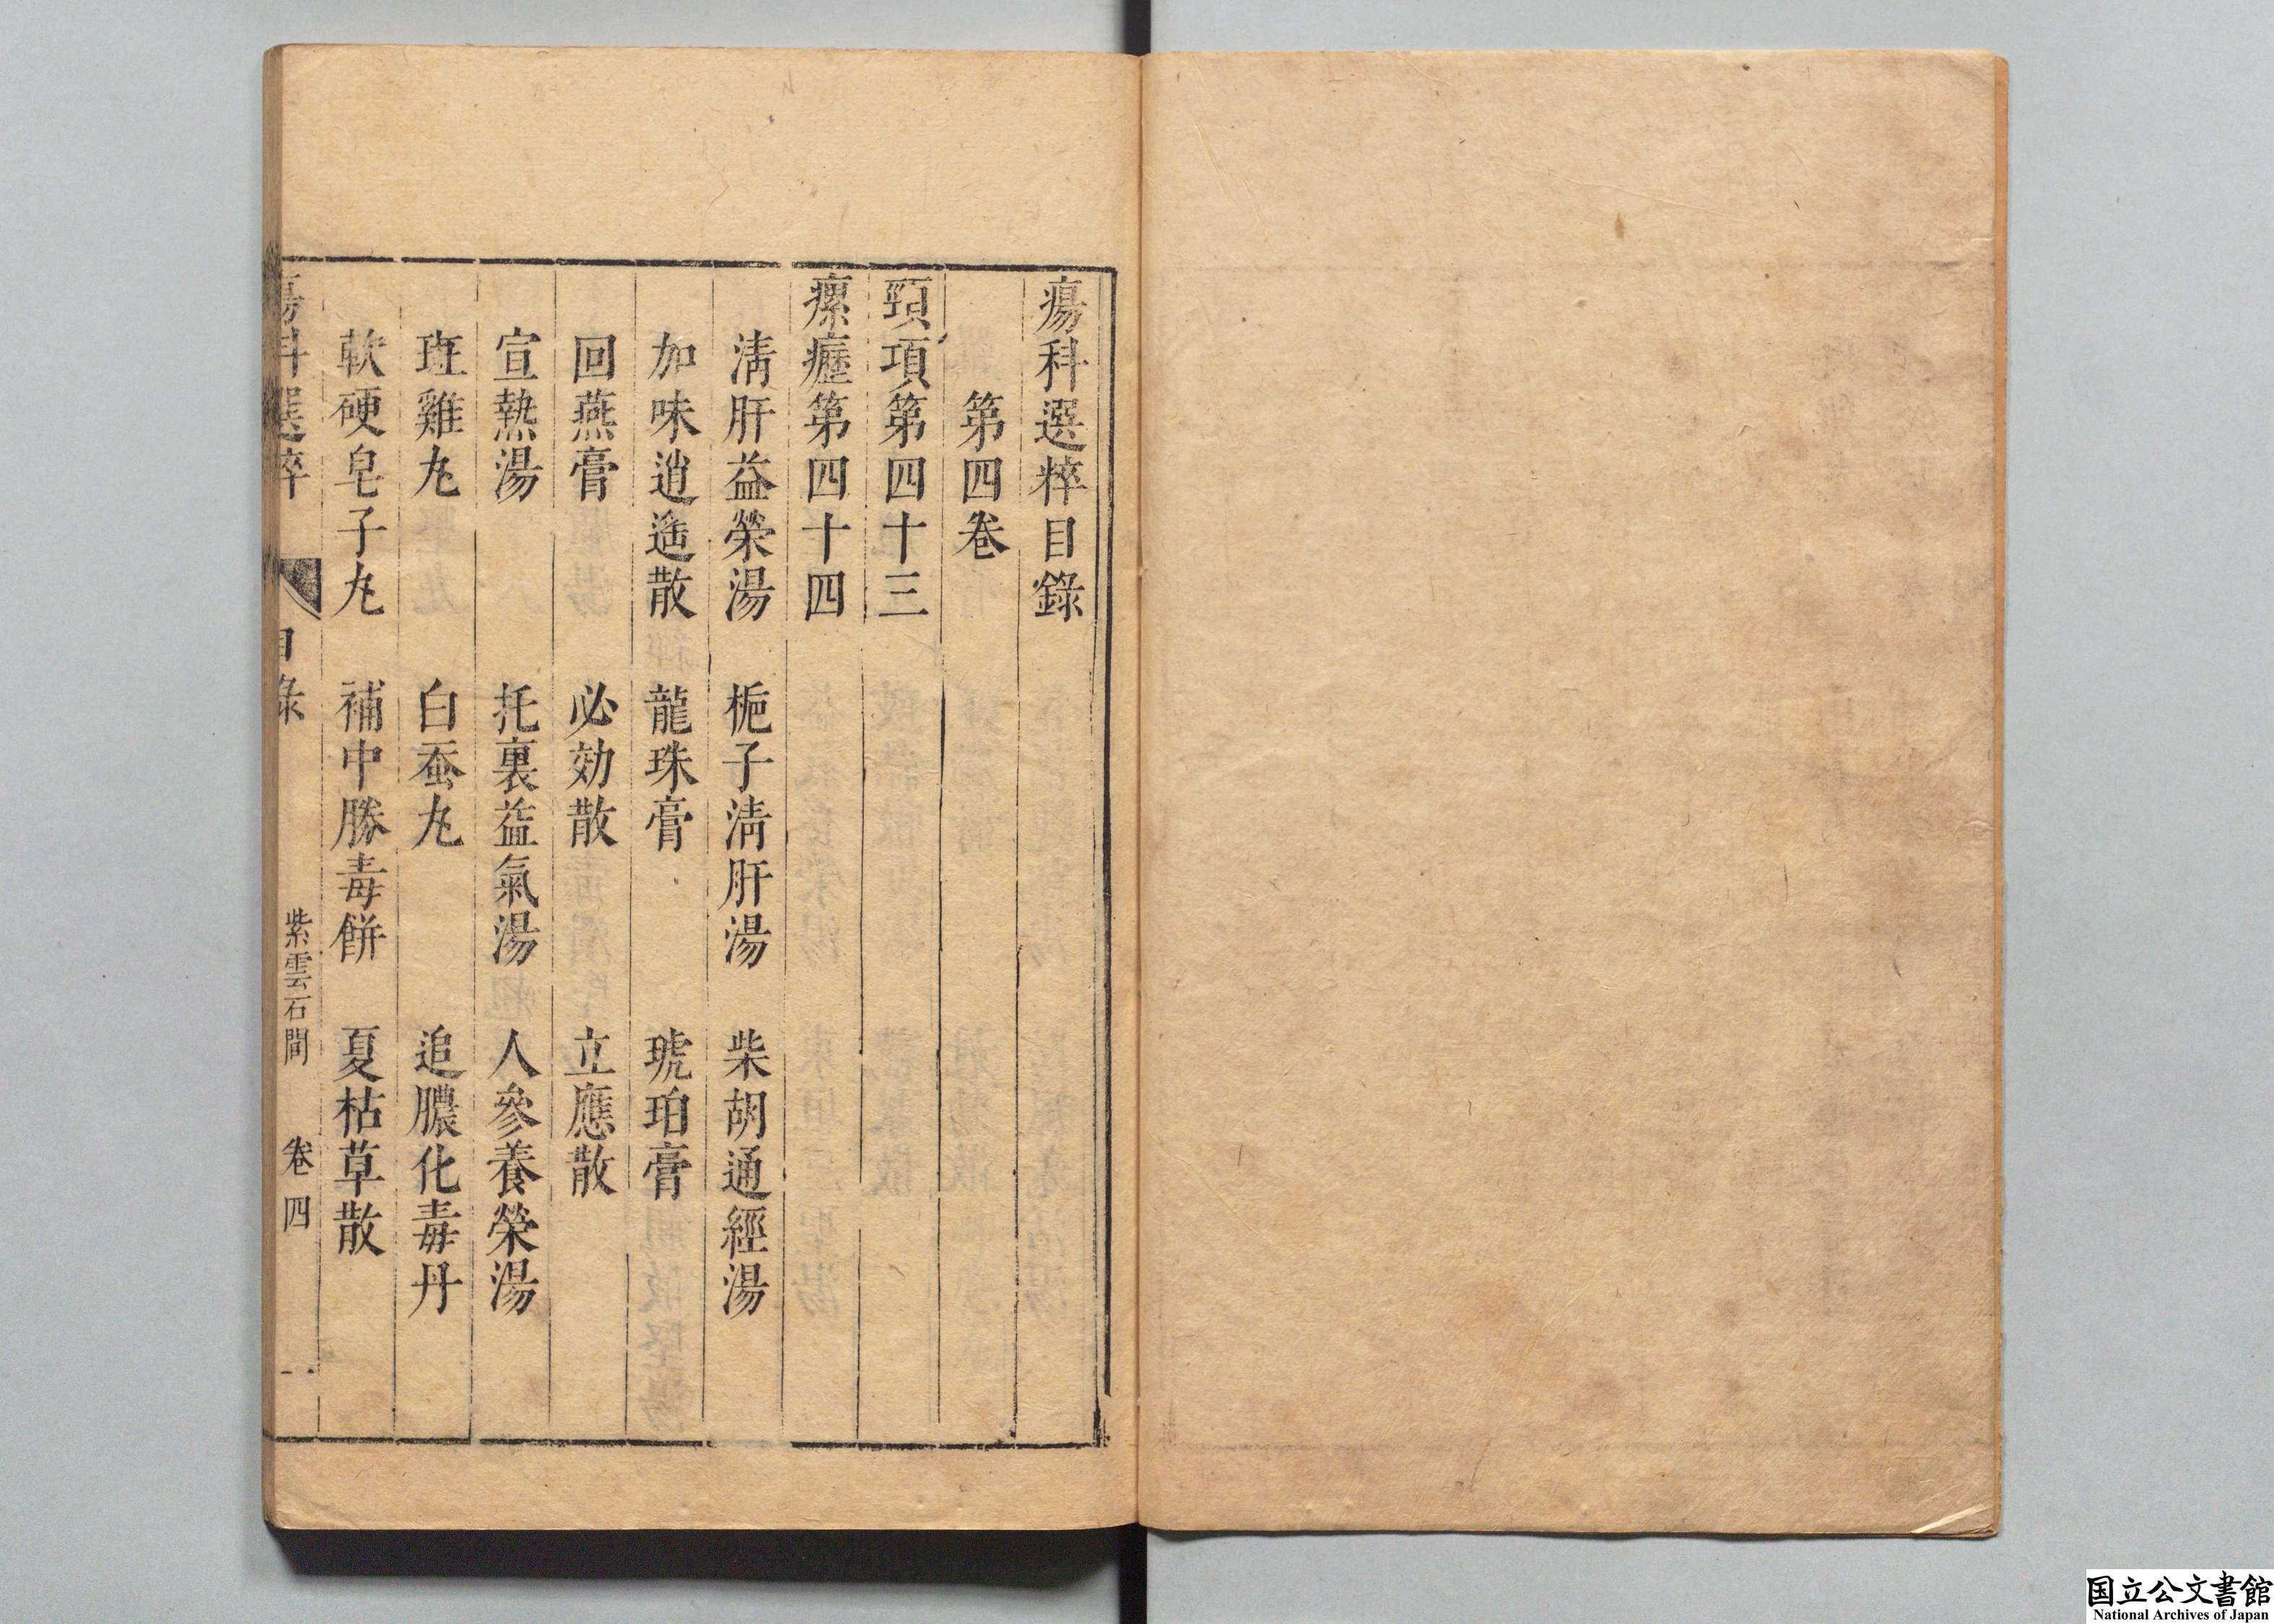 瘍科選粹目錄
第四卷
頸項第四十三
瘰癧第四十四
淸肝益榮湯　梔子淸肝湯　柴胡通經湯
加味逍遙散　龍珠膏　琥珀膏
回燕膏　必効散　立應散
宣熱湯　托裏益氣湯　人參養榮湯
斑雞丸　白蚕丸　追膿化毒丹
軟硬皂子丸　補中勝毒餅　夏枯草散
瘍科選粹　目錄　紫雲石間　卷四　一
国立公文書館
National Archives of Japan